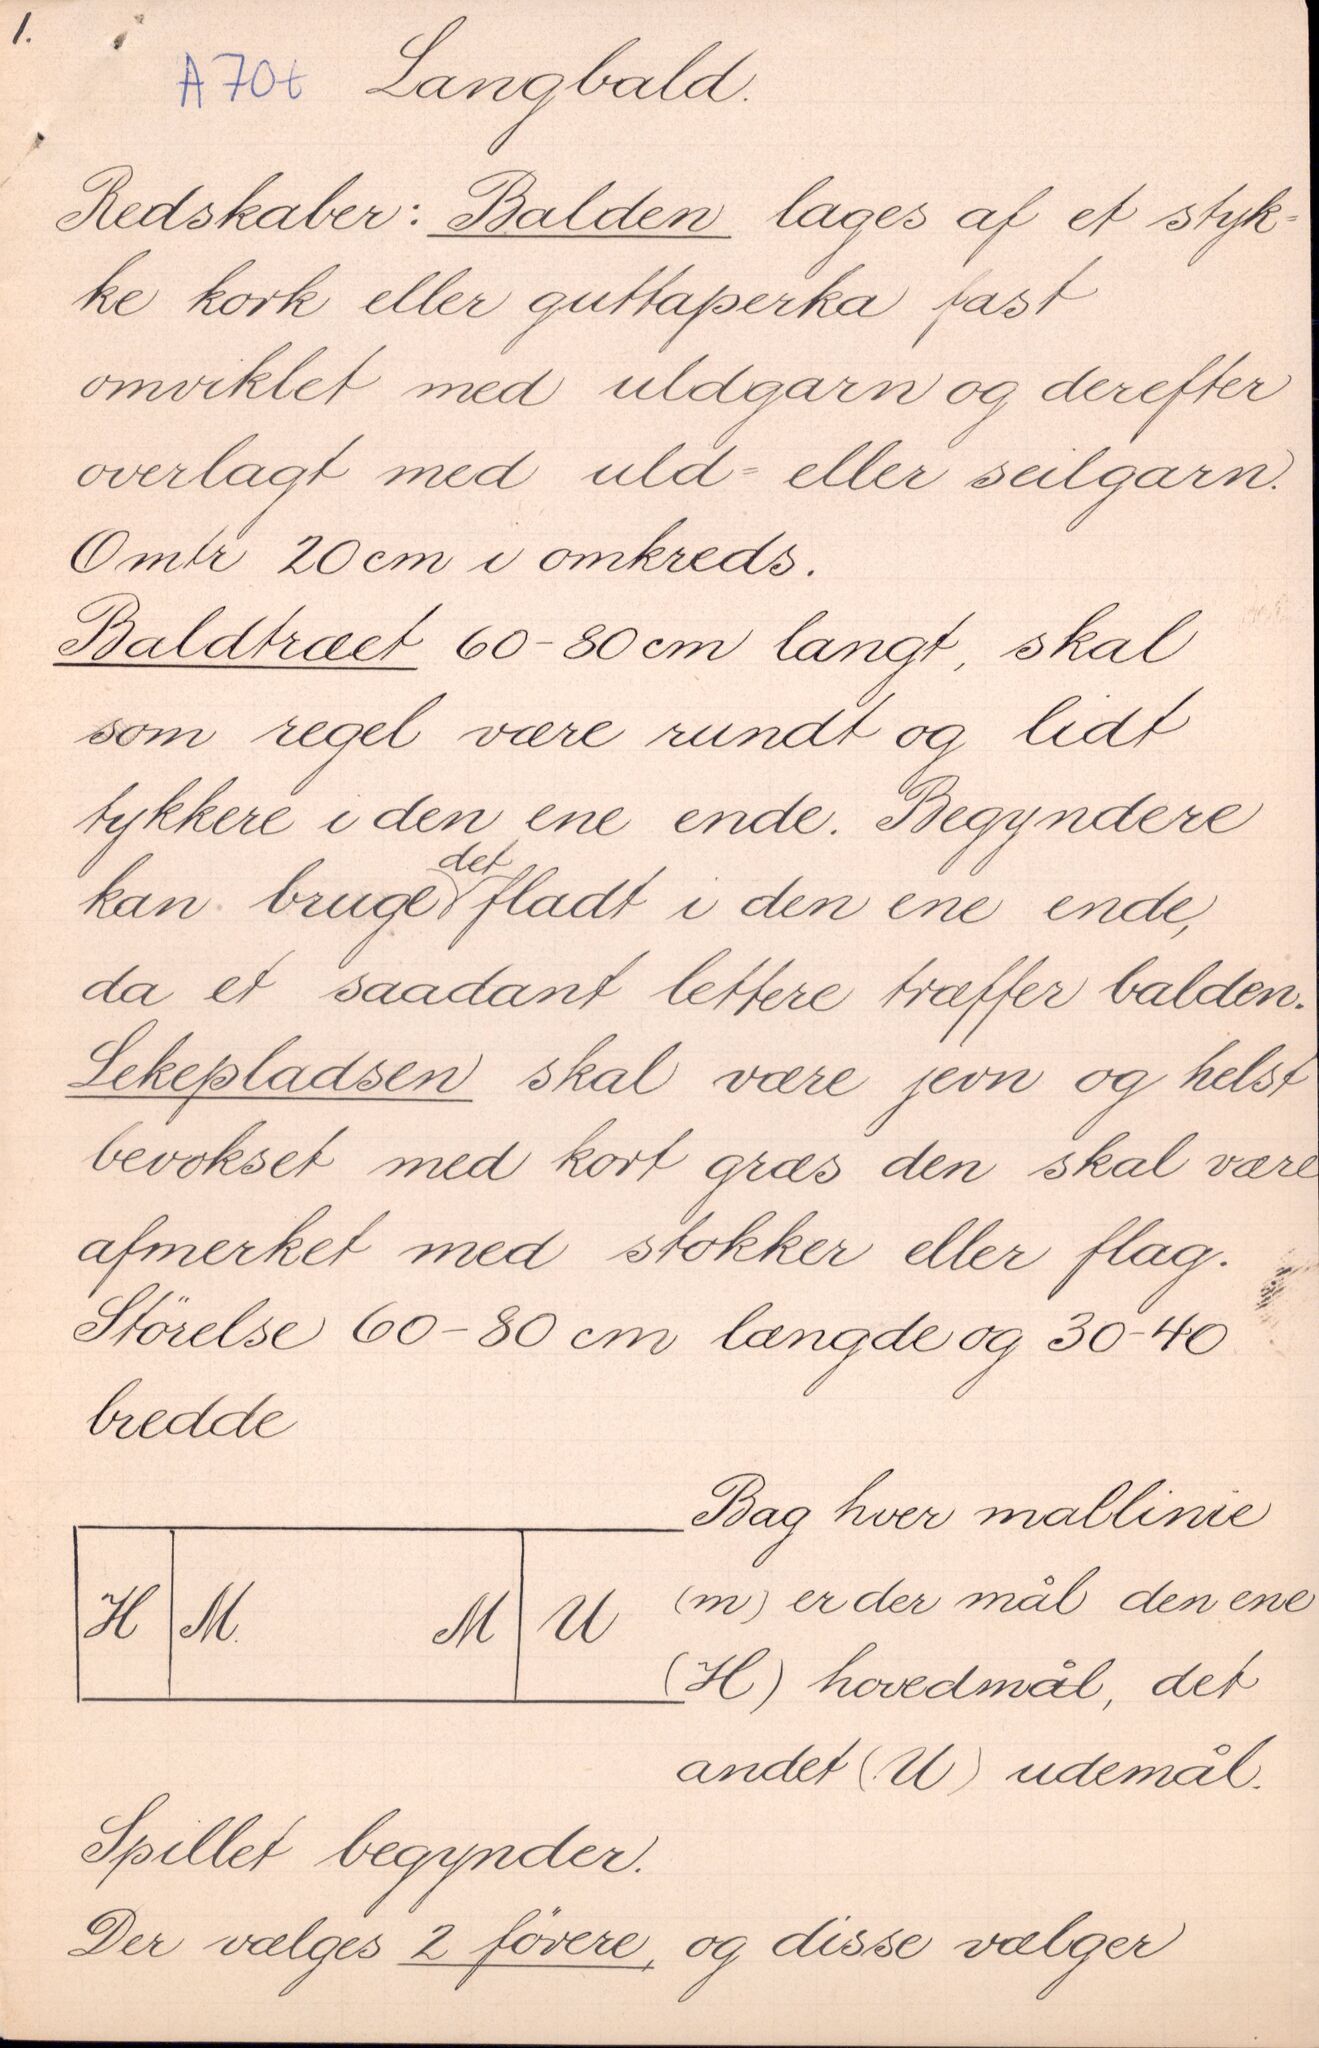 1.
A 70t Langbald.
Redskaber: Balden lages af et styk=
ke kork eller guttaperka fast
omviklet med uldgarn og derefter
overlagt med uld= eller seilgarn.
Omtr 20 cm i omkreds.
Baldtræet 60-80 cm langt, skal
som regel være rundt og lidt
tykkere i den ene ende. Begyndere
kan bruge det fladt i den ene ende,
da et saadant lettere træffer balden.
Lekepladsen skal være jevn og helst
bevokset med kort græs den skal være
afmerket med stokker eller flag.
Störelse 60-80 cm længde og 30-40
bredde
Bag hver mallinie
H M. M U (m) er der mål den ene
(H) hovedmål, det
andet (U) udemål.
Spillet begynder.
Der vælges 2 förere, og disse vælger